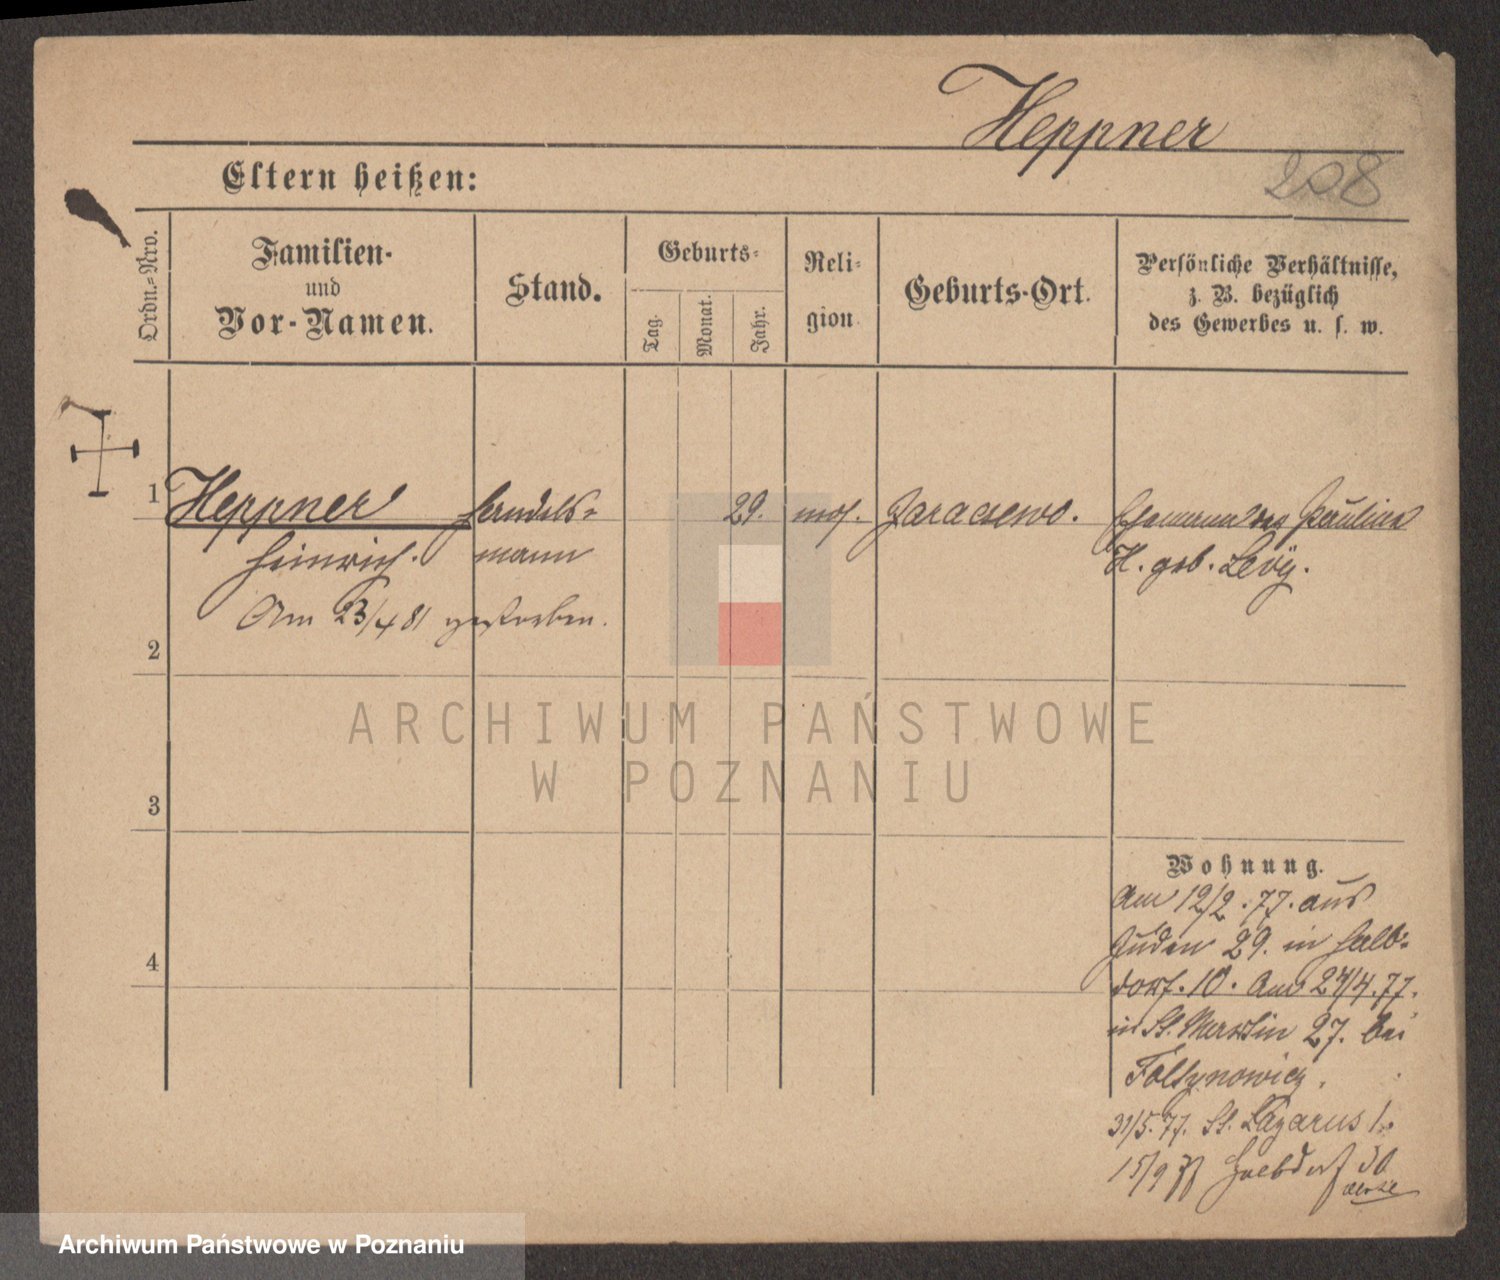 Heppner
208
Eltern heißen:
Ordn.-Nro.
Familien-
und
Vor-Namen.
Stand.
Geburts-
Tag.
Monat.
Jahr.
Reli-
gion.
Geburts-Ort.
Persönliche Verhältnisse,
z. B. bezüglich
des Gewerbes u. s. w.
1 Heppner Handels- 29. mos. Jaracewo. Ehemann der Pauline
Heinrich. mann H. geb. Levy.
Am 23/4 81 gestorben.
2
ARCHIWUM PAŃSTWOWE
W POZNANIU
3
Wohnung.
Am 12/2. 77. aus
Juden 29. in Halb-
4
dorf. 10. Am 24/4. 77.
in St. Martin 27. bei
Foltynowicz.
31/5. 77. St. Lazarus 1.
15/9 77 Halbdorf 30
Archiwum Państwowe w Poznaniu